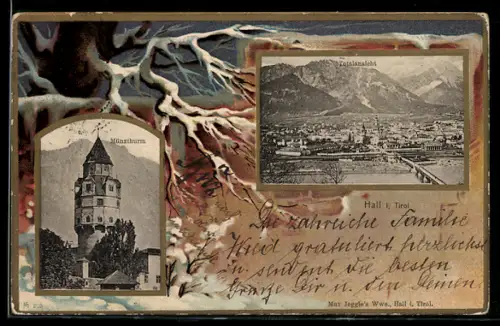 Totalansicht
Münzthurm
Hall i. Tirol
Die zahreiche Familie
Wied gratuliert herzlichst
u. sendet die besten
Grüsse Dir u. den Deinen
Max Jeggle's Wwe., Hall i. Tirol.